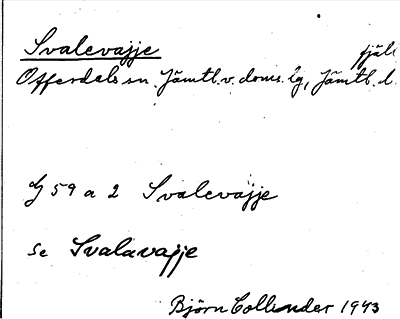 Svalevajje fjäll
Offerdals sn. Jämtl. v. doms. lg, Jämtl. l.
G 59 a 2 Svalevajje
Se Svalavajje
Björn Collinder 1943